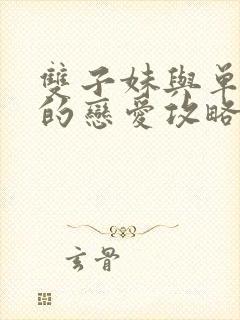 雙子妹與單
的戀愛攻略
玄骨